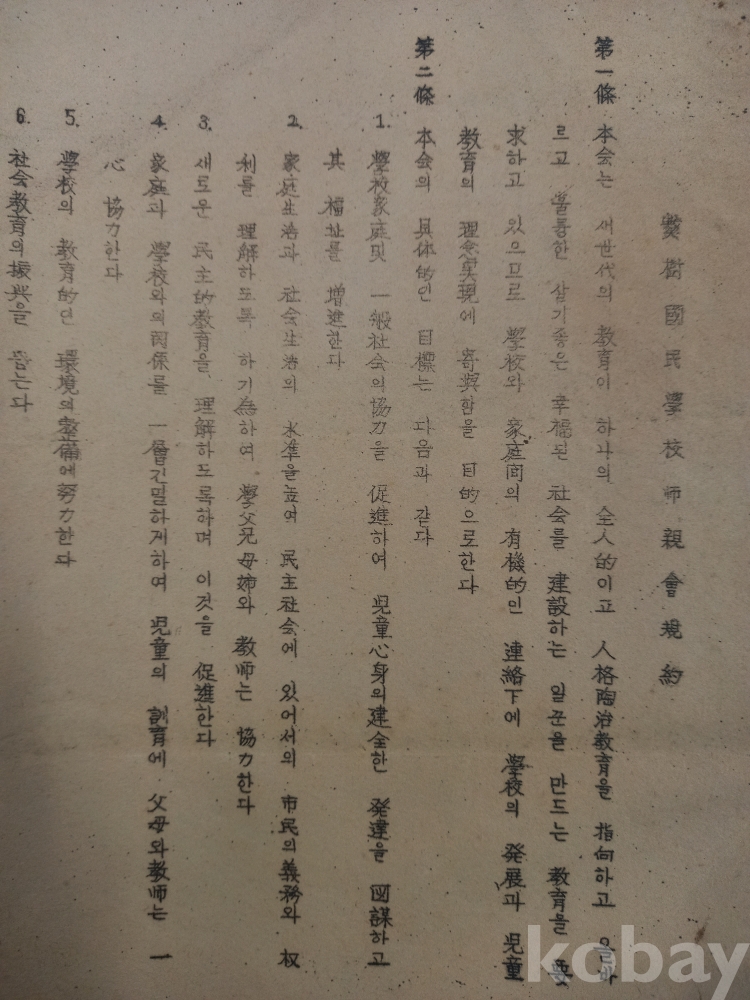 樹國民學校師親會規約
第一條 本会는 새世代의 教育이 하나의 全人的이고 人格陶冶教育을 指向하고 올바
르고 훌륭한 살기좋은 幸福된 社会를 建設하는 일꾼을 만드는 教育을 要
求하고 있으므로 學校와 家庭間의 有機的인 連絡下에 學校의 発展과 児童
教育의 理念実現에 寄與함을 目的으로한다
第二條 本会의 具体的인 目標는 다음과 같다
1. 學校家庭및 一般社会의 協力을 促進하여 児童心身의 健全한 発達을 図謀하고
其 福祉를 増進한다
2. 家庭生活과 社会生活의 水準을높여 民主社会에 있어서의 市民의 義務와 权
利를 理解하도록 하기為하여 學父兄母姉와 教师는 協力한다
3. 새로운 民主的教育을 理解하도록하며 이것을 促進한다
4. 家庭과 學校와의 関係를 一層긴밀하게하여 児童의 訓育에 父母와教师는 一
心 協力한다
5. 學校의 教育的인 環境의 整備에努力한다
6. 社会教育의振興을 돕는다
kobay